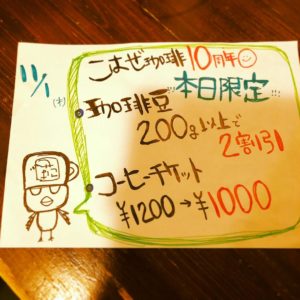 11/1
(水)
こはぜ珈琲10周年
本日限定!!!
珈琲豆
200g以上で
2割引
コーヒーチケット
¥1200→¥1000